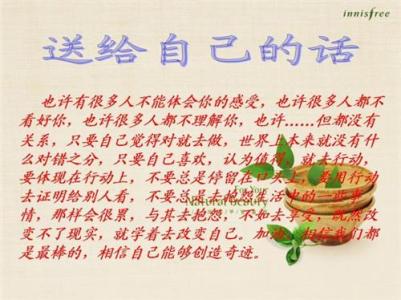 innisfree
送给自己的话
也许有很多人不能体会你的感受，也许很多人都不
看好你，也许很多人都不理解你，也许……但都没有
关系，只要自己觉得对就去做，世界上本来就没有什
么对错之分，只要自己喜欢，认为值得，就去行动，
要体现在行动上，不要总是停留在口头上，要用行动
去证明给别人看，不要总是去抱怨生活中的一些事
情，那样会很累，与其去抱怨，不如去享受，既然改
变不了现实，就学着去改变自己。加油，相信我们都
是最棒的，相信自己能够创造奇迹。
For Your
Natural Beauty